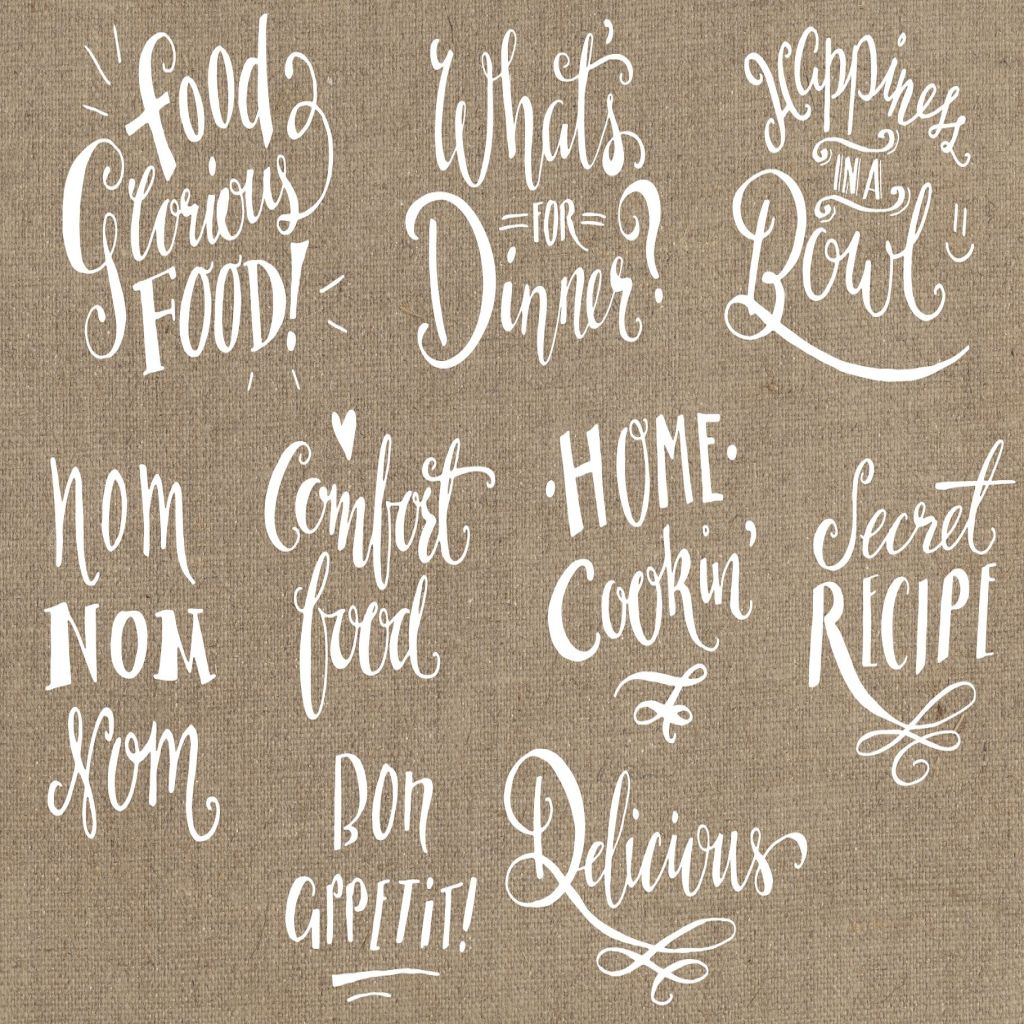 food
Glorious
FOOD!
What's
=FOR=
Dinner?
Happiness
IN A
Bowl
nom
NOM
Nom
Comfort
food
HOME
Cookin'
Secret
RECIPE
Bon
APPETIT!
Delicious